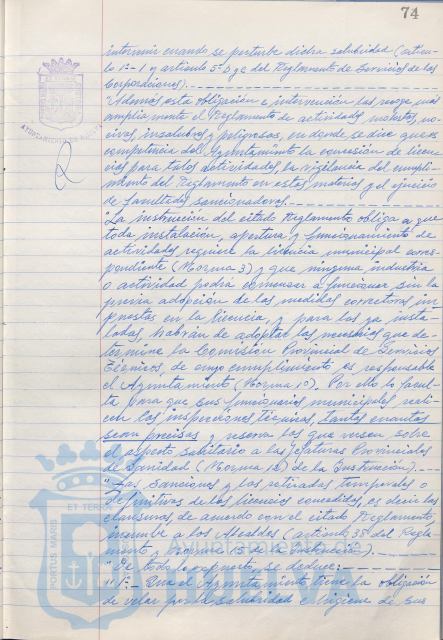 74
intervenir cuando se perturbe dicha salubridad (artícu-
lo 1º-1 y artículo 5º D y C del Reglamento de Servicios de las
Corporaciones).
"Además esta obligación e intervención las recoge más
ampliamente el Reglamento de actividades molestas, no-
civas, insalubres y peligrosas, en donde se dice que es
competencia del Ayuntamiento la concesión de licen-
cias para tales actividades, la vigilancia del cumpli-
miento del Reglamento en estas materias y el ejercicio
de facultades sancionadoras.
"La instrucción del citado Reglamento obliga a que
toda instalación, apertura y funcionamiento de
actividades, requiere la licencia municipal corres-
pondiente (Norma 3) y que ninguna industria
o actividad podrá comenzar a funcionar sin la
previa adopción de las medidas correctoras im-
puestas en la licencia, y para las ya insta-
ladas, habrán de adoptar las necesarias que de-
termine la Comisión Provincial de Servicios
Técnicos, de cuyo cumplimiento es responsable
el Ayuntamiento (Norma 10). Por ello le facul-
ta para que sus funcionarios municipales reali-
cen las inspecciones técnicas, tantas cuantas
sean precisas y reserva las que versen sobre
el aspecto sanitario a las Jefaturas Provinciales
de Sanidad (Norma 12) de la Instrucción).
"Las sanciones y las retiradas temporales o
definitivas de las licencias concedidas, es decir las
clausuras, de acuerdo con el citado Reglamento
incumbe a los Alcaldes (artículo 38 del Regla-
mento y Norma 15 de la Instrucción).
"De todo lo expuesto, se deduce:
"1º.- Que el Ayuntamiento tiene la obligación
de velar por la salubridad e higiene de sus
PORTUS MARIS
ET TERR